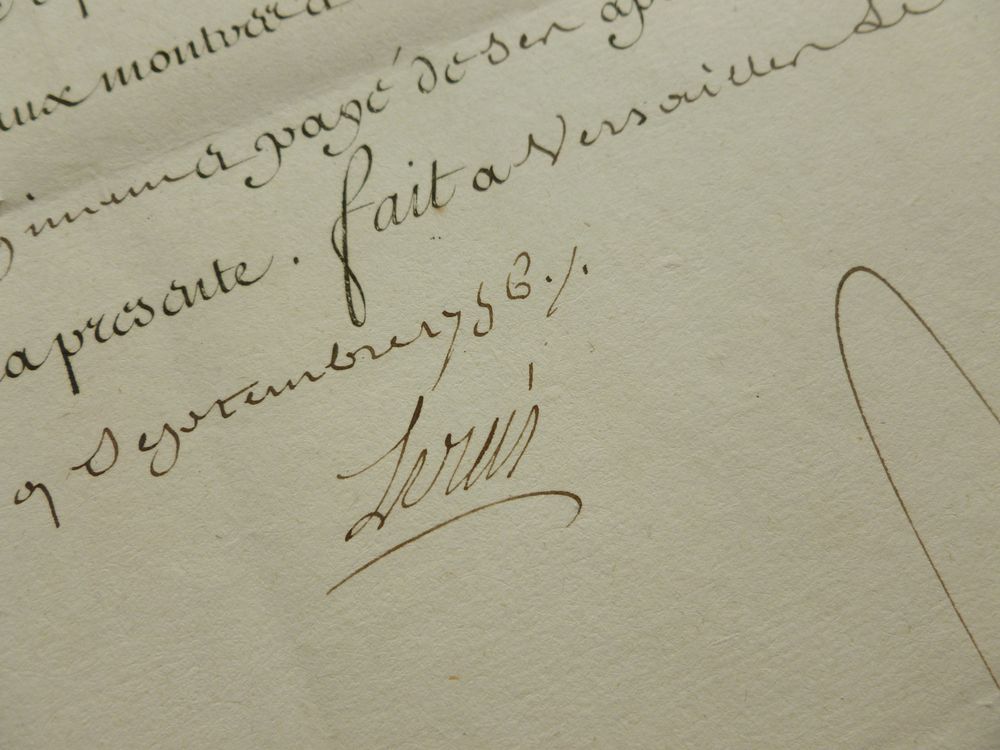 aux montera
a payé de ses
la presente. fait a Versailles Le
9 Septembre 1756 ./.
Louis